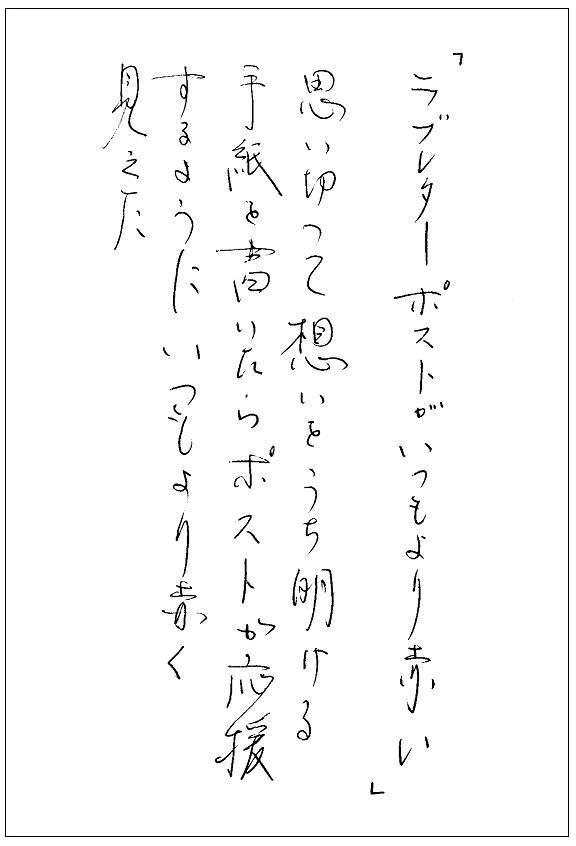 「ラブレターポストがいつもより赤い」
思い切って想いをうち明ける
手紙を書いたらポストが応援
するようにいつもより赤く
見えた